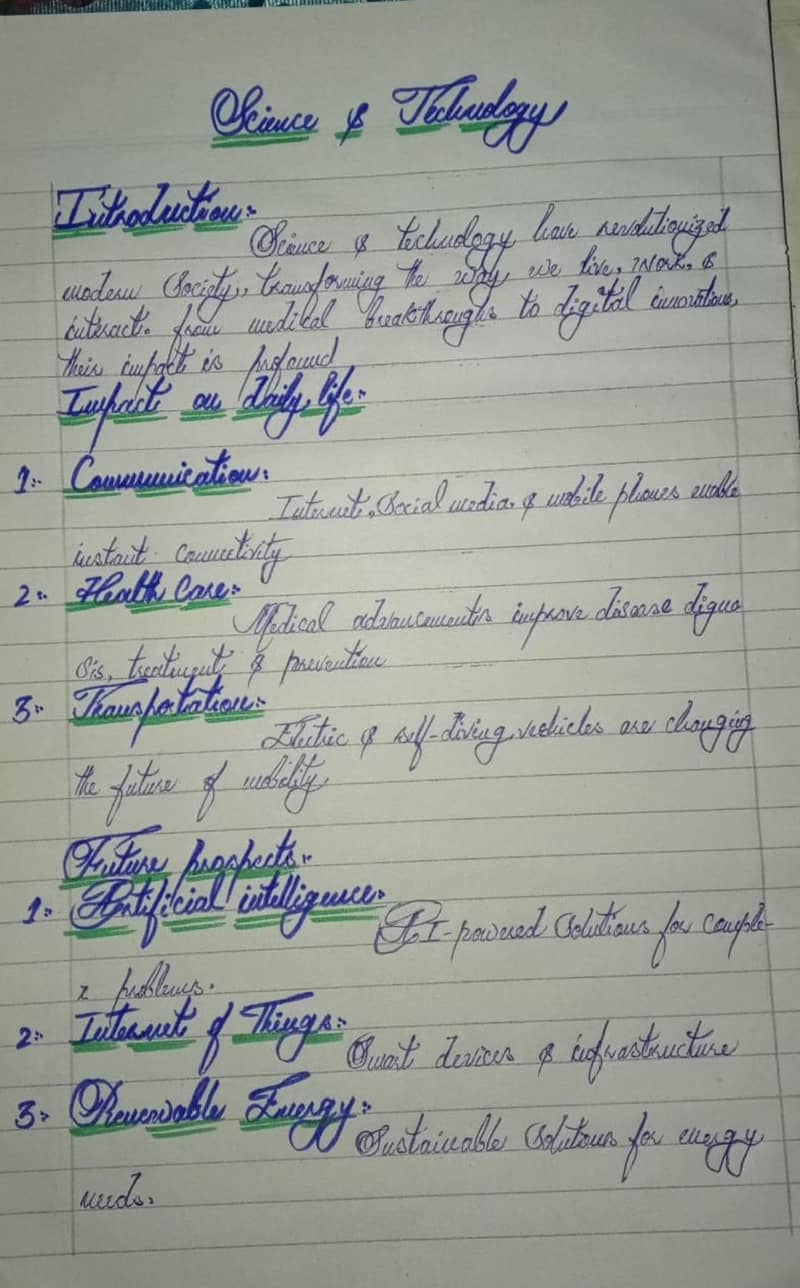 Science & Technology
Introduction:-
Science & technology have revolutionized
modern Society, transforming the way we live, work, &
interact. from medical breakthroughs to digital innovations,
their impact is profound
Impact on Daily life:-
1:- Communication:
Internet, Social media, & mobile phones enable
instant connectivity
2:- Health Care:-
Medical advancements improve disease digno
sis, treatment & prevention
3:- Transportation:-
Electric & self-diving vechicles are changing
the future of mobility
Future prospects:-
1:- Artificial intelligence:-
AI-powered Solutions for comple-
x problems.
2:- Internet of Things:-
Smart devices & infrastructure
3:- Renewable Energy:-
Sustainable Solutions for energy
needs.